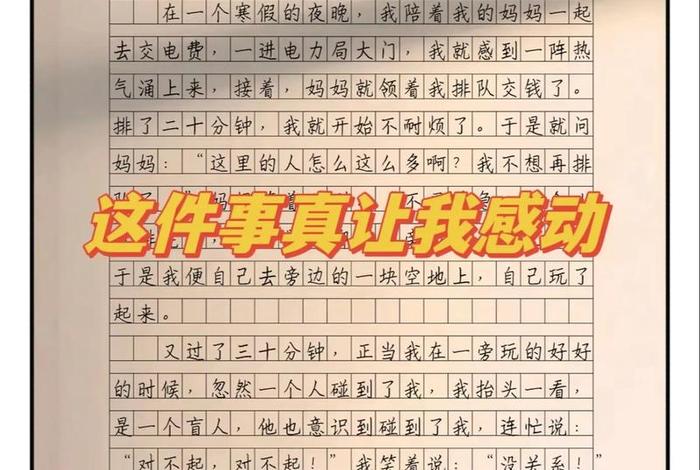 在一个寒假的夜晚，我陪着我的妈妈一起
去交电费，一进电力局大门，我就感到一阵热
气涌上来，接着，妈妈就领着我排队交钱了。
排了二十分钟，我就开始不耐烦了。于是就问
妈妈：“这里的人怎么这么多啊？我不想再排
这件事真让我感动
于是我便自己去旁边的一块空地上，自己玩了
起来。
又过了三十分钟，正当我在一旁玩的好好
的时候，忽然一个人碰到了我，我抬头一看，
是一个盲人，他也意识到碰到了我，连忙说：
“对不起，对不起！”我笑着说：“没关系！”